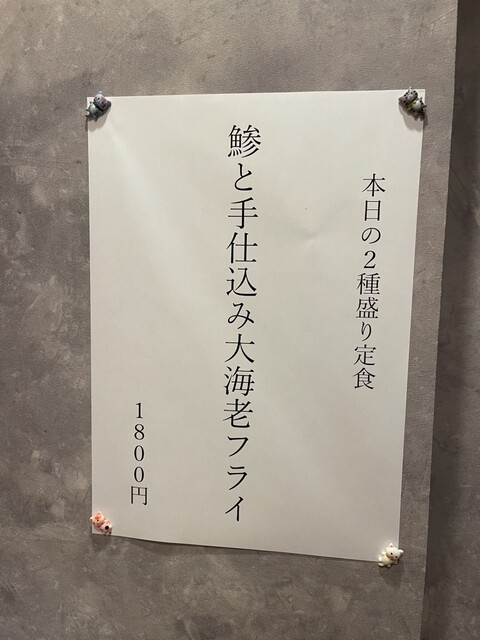 本日の2種盛り定食
鯵と手仕込み大海老フライ
1800円